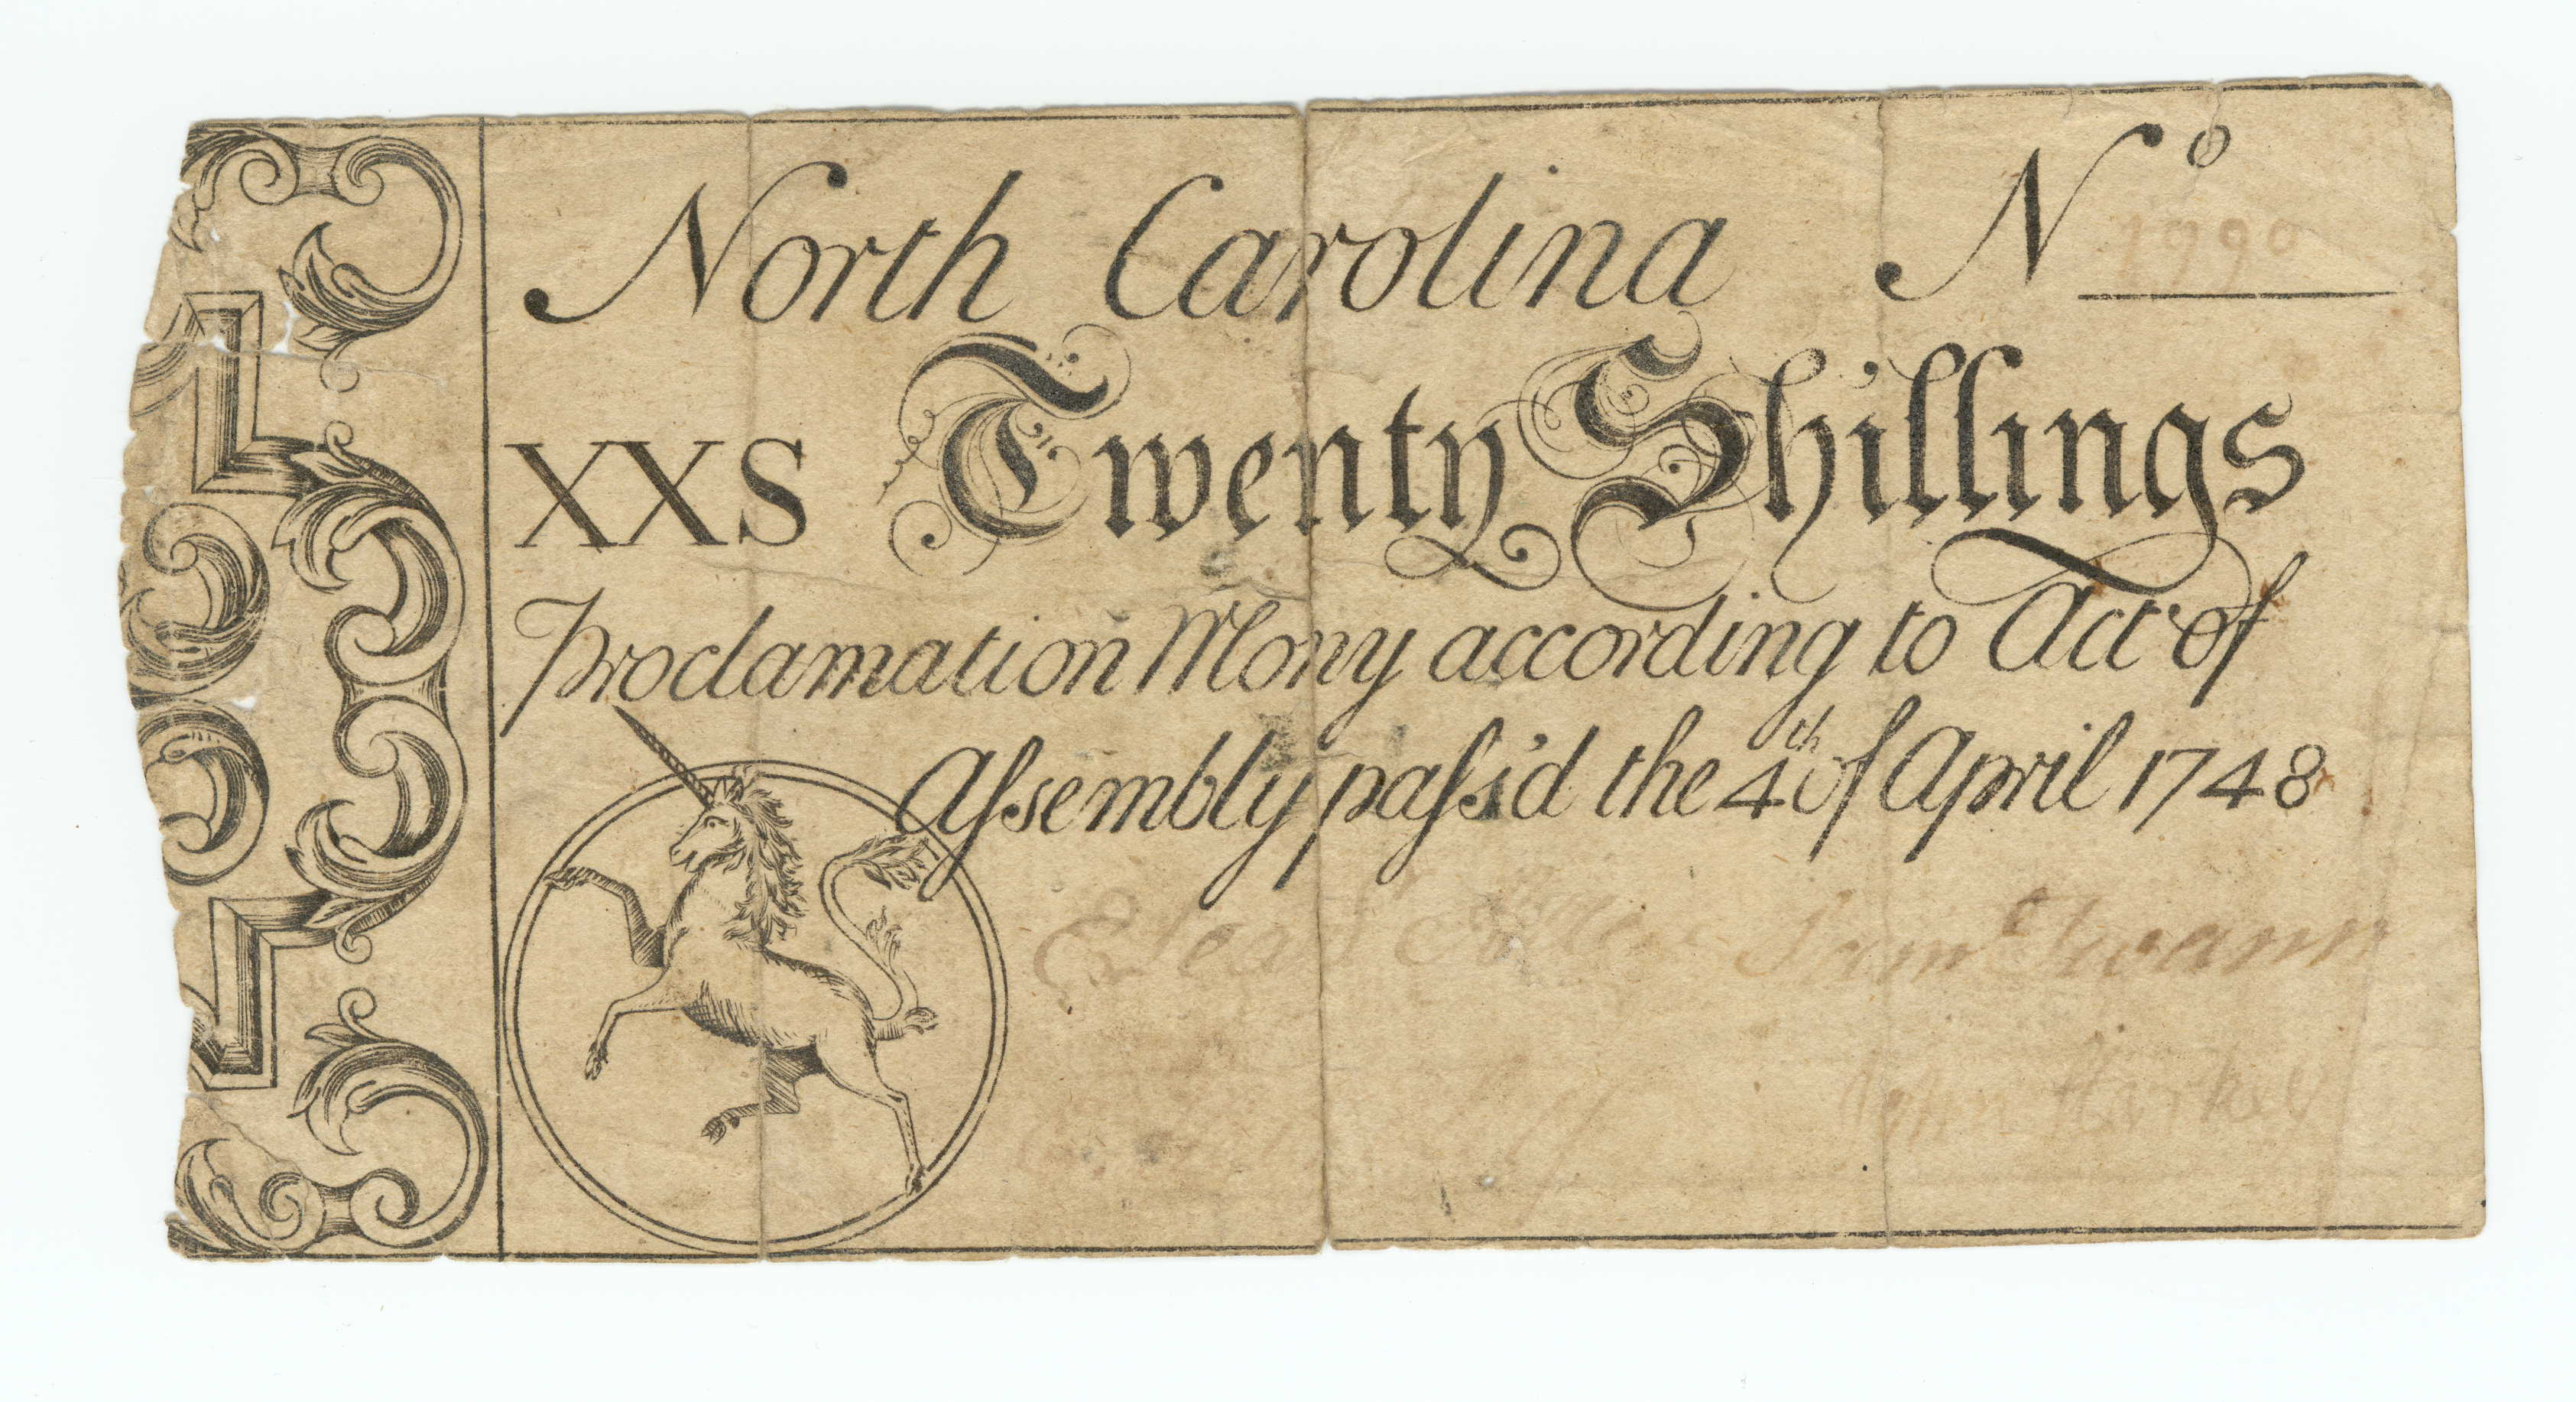 North Carolina Nº 1990
XXS Twenty Shillings
Proclamation Mony according to Act of
Aſsembly paſs'd the 4th of April 1748
Saml Swann
John Starkey